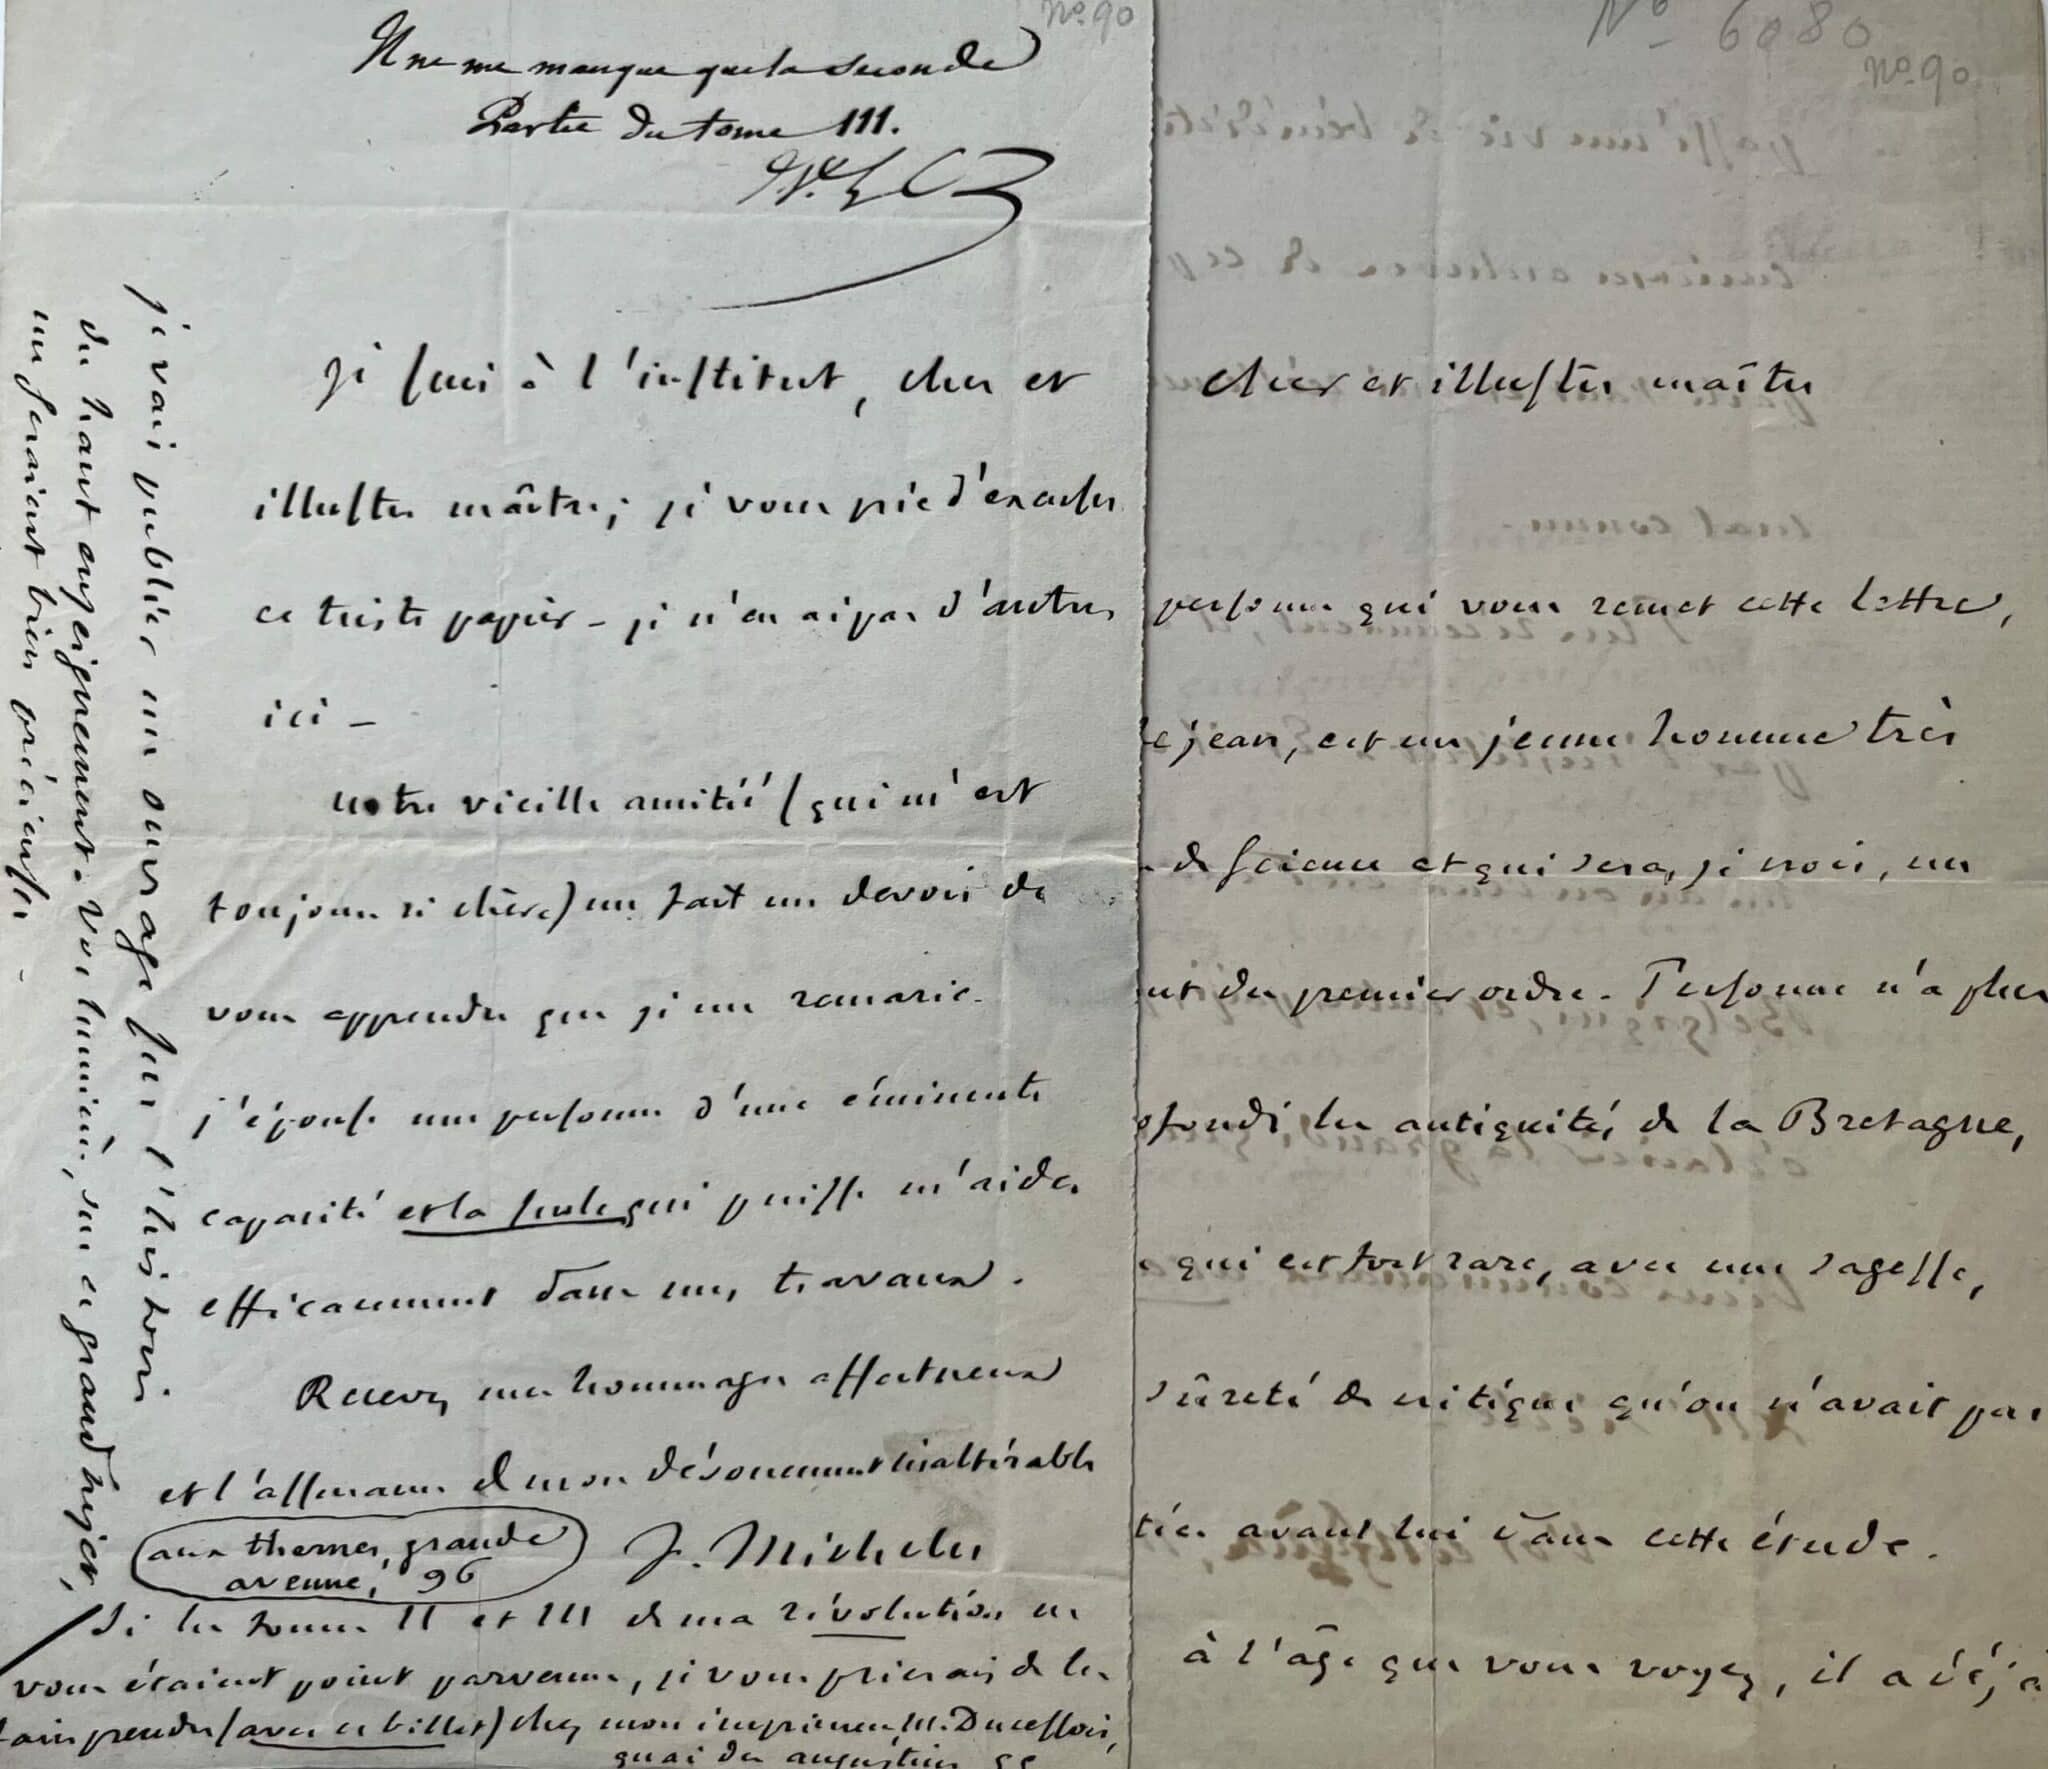 No. 90
Il ne me manque que la seconde
Partie du tome III.
je suis à l'institut, cher et
illustre maître; je vous prie d'excuser
ce triste papier – je n'en ai pas d'autres
ici –
notre vieille amitié (qui m'est
toujours si chère) me fait un devoir de
vous apprendre que je me remarie.
j'épouse une personne d'une éminente
capacité et la seule qui puisse m'aider
efficacement dans mes travaux.
Recevez mes hommages affectueux
et l'assurance de mon dévouement inaltérable
J. Michelet
aux thernes, grande
avenue, 96
Si les tomes II et III de ma révolution ne
vous étaient point parvenus, je vous prierais de les
faire prendre (avec ce billet) chez mon imprimeur, M. Ducessois,
quai des augustins 55
je vais publier un ouvrage sur l'histoire
du haut enseignement. Vos lumières, sur ce grand sujet,
me seraient bien précieuses –
No 6080
No. 90
cher et illustre maître
personne qui vous remet cette lettre,
lejean, est un jeune homme très
de science et qui sera, je crois, un
du premier ordre. Personne n'a plus
ofondi les antiquités de la Bretagne,
qui est fort rare, avec une sagesse,
sûreté de critique qu'on n'avait pas
tée avant lui dans cette étude.
à l'âge que vous voyez, il a déjà